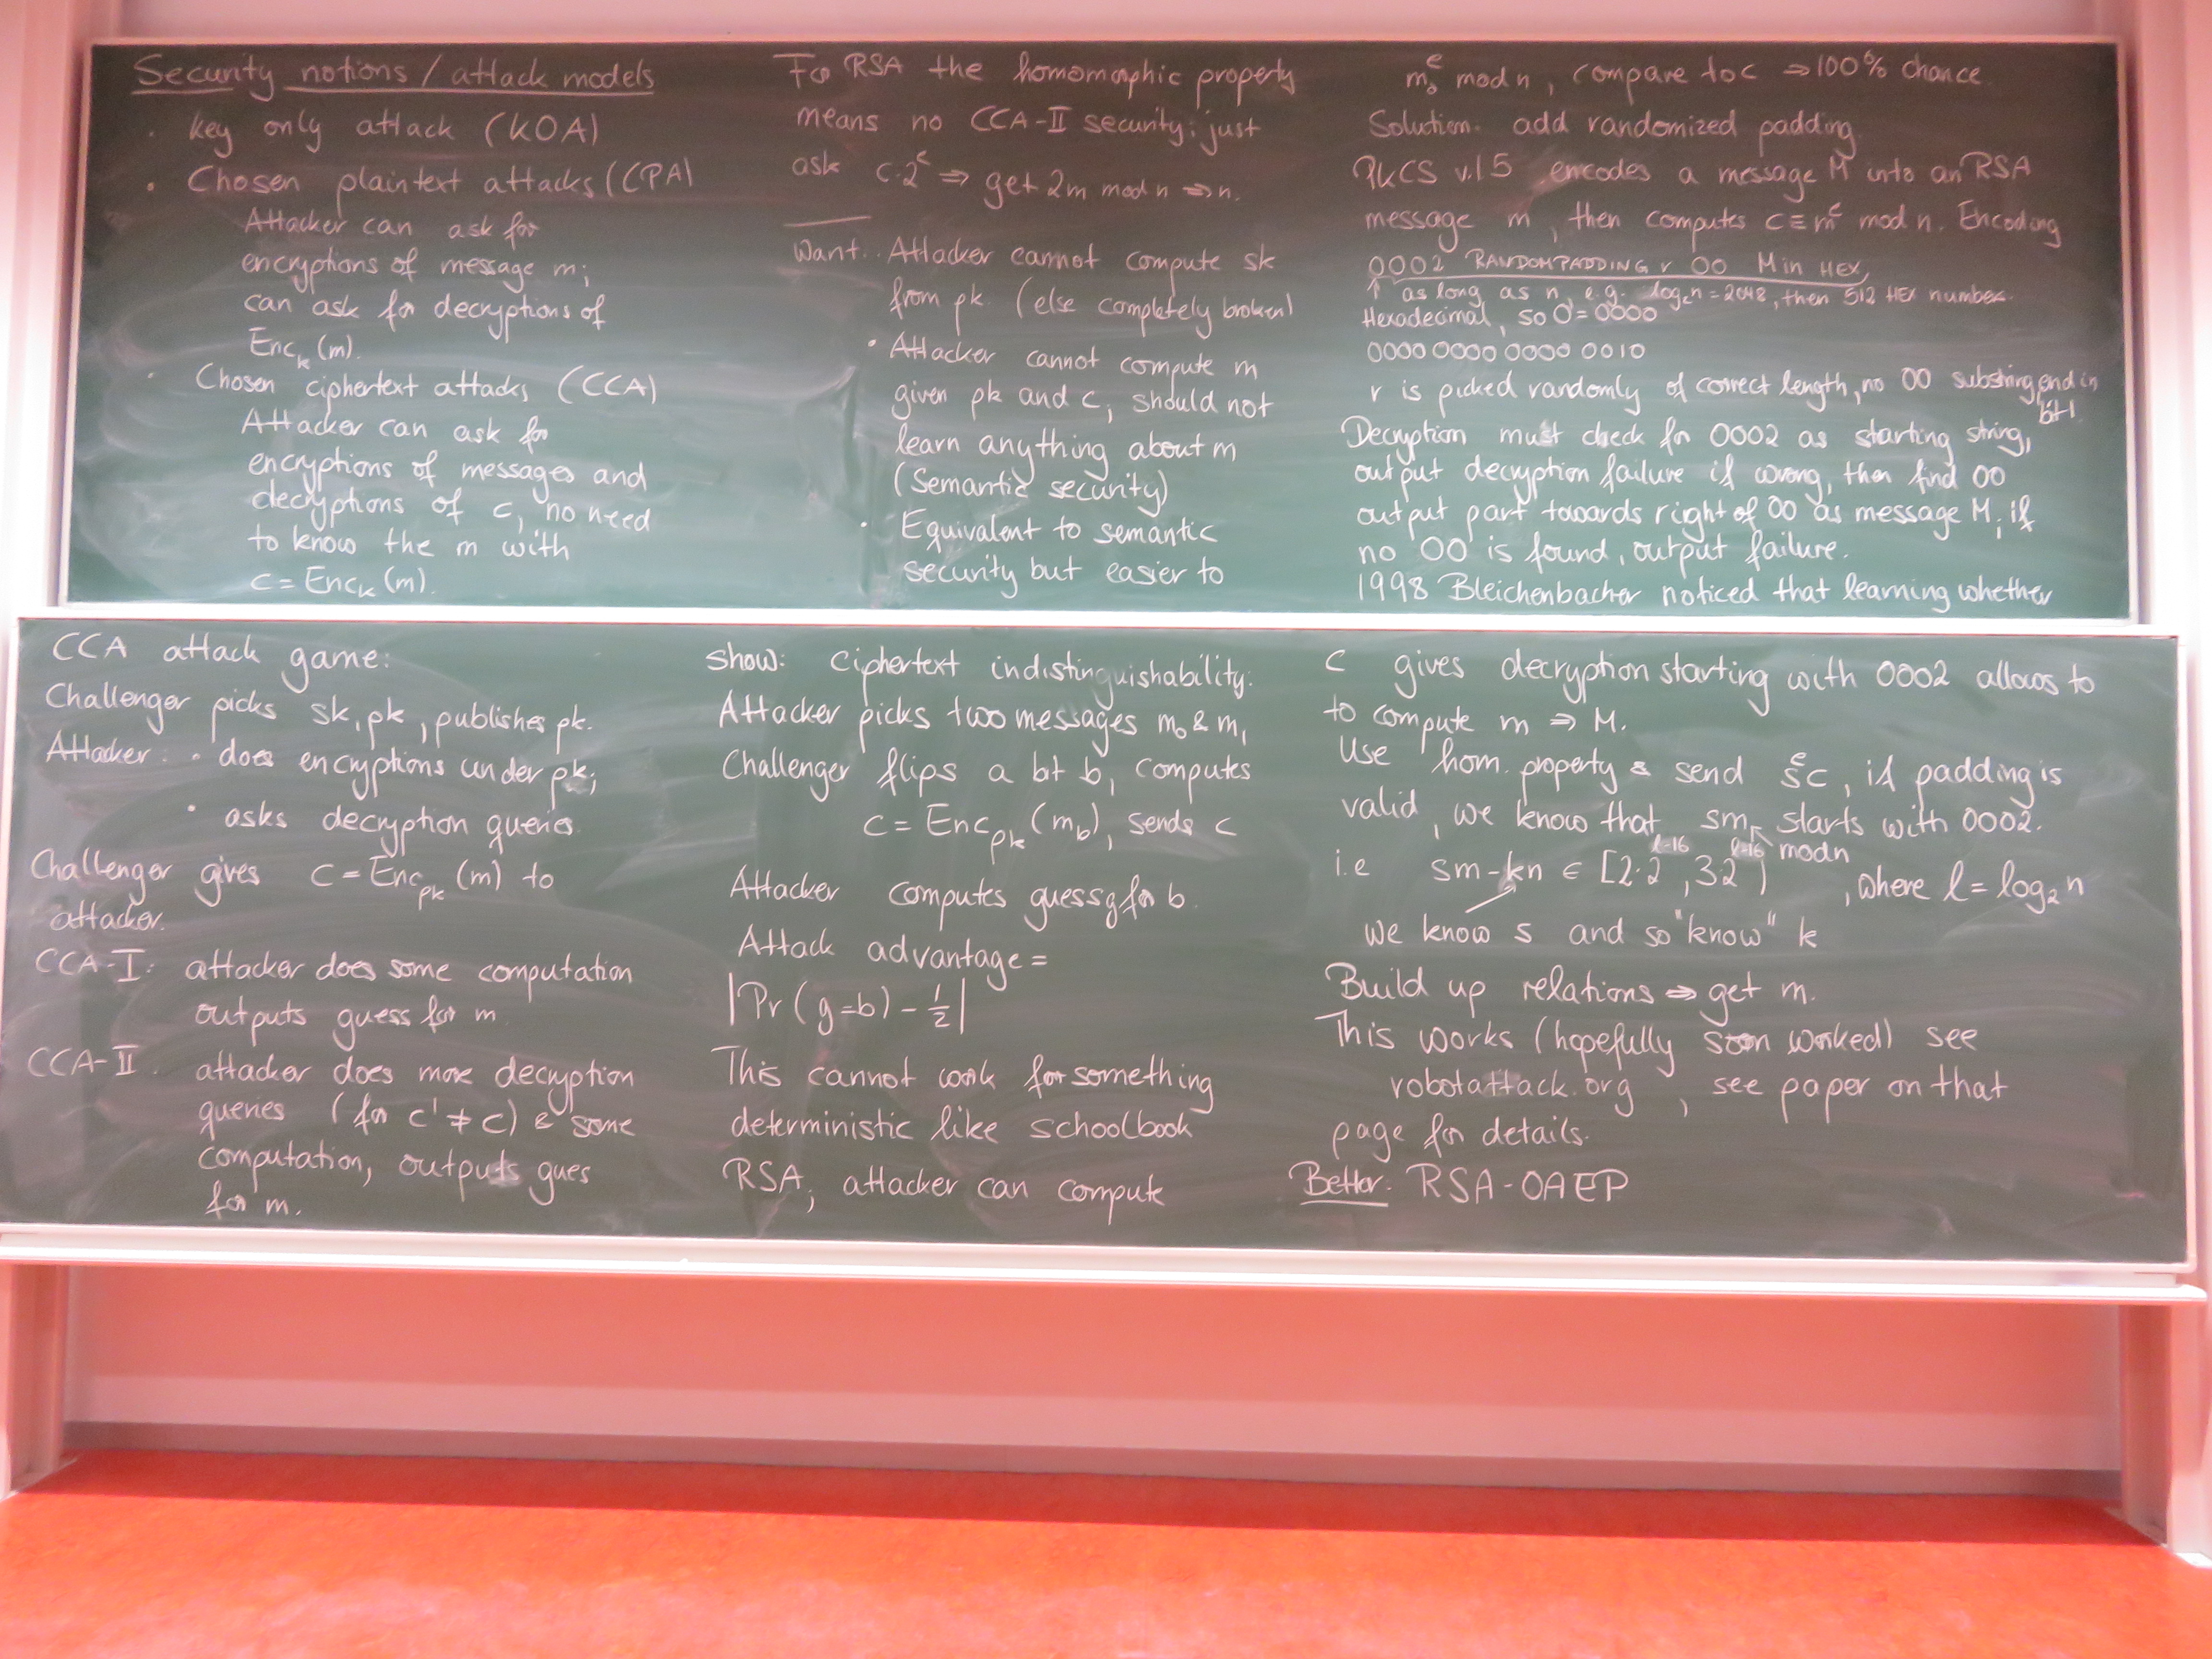 Security notions / attack models
· key only attack (KOA)
· Chosen plaintext attacks (CPA)
Attacker can ask for
encryptions of message m;
can ask for decryptions of
Enc_k (m).
· Chosen ciphertext attacks (CCA)
Attacker can ask for
encryptions of messages and
decryptions of c, no need
to know the m with
c = Enc_k (m).
CCA attack game:
Challenger picks sk, pk, publishes pk.
Attacker: · does encryptions under pk;
· asks decryption queries
Challenger gives c = Enc_pk (m) to
attacker.
CCA-I: attacker does some computation
outputs guess for m
CCA-II. attacker does more decryption
queries (for c' ≠ c) & some
computation, outputs gues
for m.
For RSA the homomorphic property
means no CCA-II security: just
ask c·2^e ⇒ get 2m mod n ⇒ n.
Want: · Attacker cannot compute sk
from pk (else completely broken)
· Attacker cannot compute m
given pk and c, should not
learn anything about m
(Semantic security)
· Equivalent to semantic
security but easier to
show: ciphertext indistinguishability:
Attacker picks two messages m₀ & m₁
Challenger flips a bit b, computes
c = Enc_pk (m_b), sends c
Attacker computes guess g for b.
Attack advantage =
|Pr (g=b) - 1/2|
This cannot work for something
deterministic like schoolbook
RSA; attacker can compute
m₀^e mod n, compare to c ⇒ 100% chance
Solution: add randomized padding.
PKCS v.1.5 encodes a message M into an RSA
message m, then computes c ≡ m^e mod n. Encoding
0002 RANDOMPADDING r 00 M in HEX,
↑ as long as n, e.g. log₂n = 2048, then 512 HEX number.
Hexadecimal, so 0 = 0000
0000 0000 0000 0010
r is picked randomly of correct length, no 00 substring, end in
bit 1.
Decryption must check for 0002 as starting string,
output decryption failure if wrong, then find 00
output part towards right of 00 as message M; if
no 00 is found, output failure.
1998 Bleichenbacher noticed that learning whether
c gives decryption starting with 0002 allows to
to compute m ⇒ M.
Use hom. property & send s^e c, if padding is
valid, we know that sm starts with 0002.
mod n
i.e sm-kn ∈ [2·2^(l-16), 3·2^(l-16)), where l = log₂ n
we know s and so "know" k
Build up relations ⇒ get m.
This works (hopefully soon worked) see
robotattack.org, see paper on that
page for details.
Better: RSA-OAEP